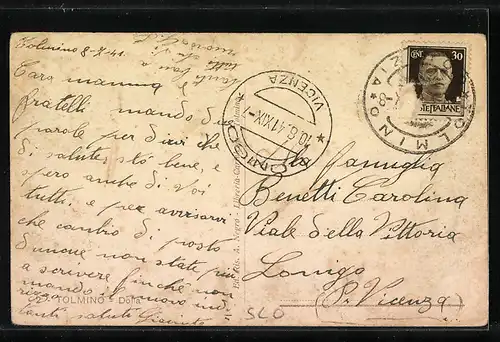 Tolmino 8-X-41
Cara mamma e
fratelli mando due
parole per dirvi che
di salute, stó bene, e
spero anche di voi
tutti, e per avvisarvi
che cambio di posto
dunque non state piu
a scrivere finche non
mando il nuovo ind
rizzo
tanti saluti
TOLMINO - Dolia
Ediz. A. Negro - Libreria
VICENZA
10.6.41 XIX
LONIGO
TOLMINO
CENT 30
POSTE ITALIANE
La Famiglia
Benetti Carolina
Viale della Vittoria
Lonigo
(P. Vicenza)
SLO